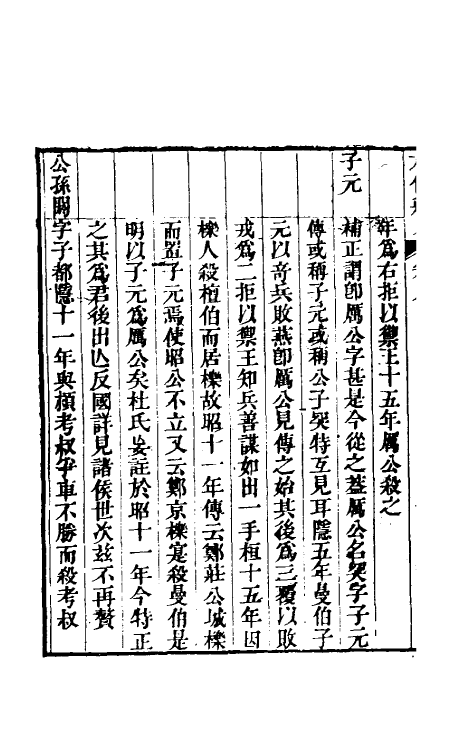 年爲右拒以禦王十五年厲公殺之
子元　補正謂卽厲公字甚是今從之蓋厲公名突字子元
傳或稱子元或稱公子突特互見耳隱五年曼伯子
元以奇兵敗燕卽厲公見傳之始其後爲三覆以敗
戎爲二拒以禦王知兵善謀如出一手桓十五年因
櫟人殺檀伯而居櫟故昭十一年傳云鄭莊公城櫟
而置子元焉使昭公不立又云鄭京櫟寔殺曼伯是
明以子元爲厲公矣杜氏妄註於昭十一年今特正
之其爲君後出亡反國詳見諸侯世次茲不再贅
公孫閼字子都隱十一年與穎考叔爭車不勝而殺考叔